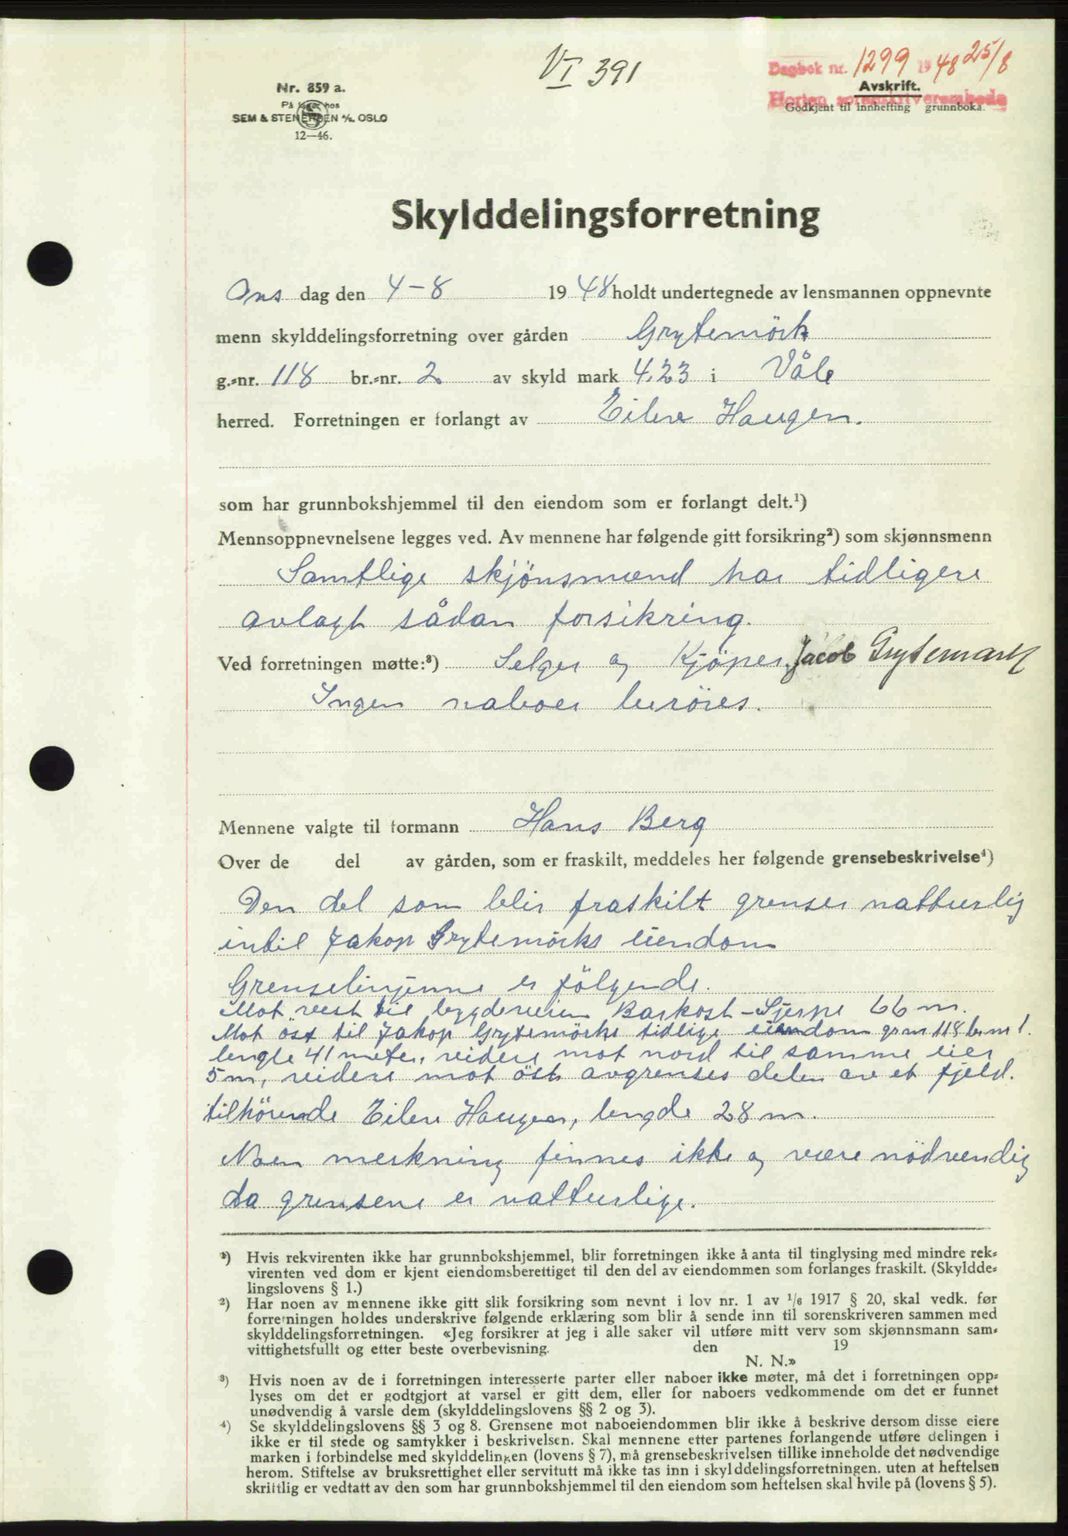 VI 391
Dagbok nr. 1299 1948 25/8
Avskrift.
Horten sorenskriverembede
Godkjent til innhefting grunnboka.
Nr. 859 a.
På lager hos
SEM & STENERSEN A/S. OSLO
12—46.
Skylddelingsforretning
Ons dag den 4-8 1948 holdt undertegnede av lensmannen oppnevnte
menn skylddelingsforretning over gården Grytemörk
g.-nr. 118 br.-nr. 2 av skyld mark 4.23 i Våle
herred. Forretningen er forlangt av Eilere Haugen.
som har grunnbokshjemmel til den eiendom som er forlangt delt.¹)
Mennsoppnevnelsene legges ved. Av mennene har følgende gitt forsikring²) som skjønnsmenn
Samtlige skjönsmænd har tidligere
avlagt sådan forsikring.
Ved forretningen møtte:³) Selger og Kjöper. Jacob Grytemark
Ingen naboer beröres.
Mennene valgte til formann Hans Berg
Over de del av gården, som er fraskilt, meddeles her følgende grensebeskrivelse⁴)
Den del som blir fraskilt grenser natturlig
intil Jakop Grytemörks eiendom
Grenselinjenne er fölgende.
Mot vest til bygdeveien Barkost-Sjerpe 66 m.
Mot öst til Jakop Grytemörks tidlige eiendom gr.nr. 118 br.nr 1.
lengte 41 meter, videre mot nord til samme eier
5 m, videre mot öst avgrenses delen av et fjeld.
tilhörende Eilere Haugen, lengde 28 m.
Noen merkning finnes ikke og være nödvendig
da grensene er natturlige.
¹) Hvis rekvirenten ikke har grunnbokshjemmel, blir forretningen ikke å anta til tinglysing med mindre rek-
virenten ved dom er kjent eiendomsberettiget til den del av eiendommen som forlanges fraskilt. (Skyldde-
lingslovens § 1.)
²) Har noen av mennene ikke gitt slik forsikring som nevnt i lov nr. 1 av ¹/6 1917 § 20, skal vedk. før
forretningen holdes underskrive følgende erklæring som blir å sende inn til sorenskriveren sammen med
skylddelingsforretningen. «Jeg forsikrer at jeg i alle saker vil utføre mitt verv som skjønnsmann sam-
vittighetsfullt og etter beste overbevisning. den 19
N. N.»
³) Hvis noen av de i forretningen interesserte parter eller naboer ikke møter, må det i forretningen opp-
lyses om det er godtgjort at varsel er gitt dem, eller for naboers vedkommende om det er funnet
unødvendig å varsle dem (skylddelingslovens §§ 2 og 3).
⁴) Se skylddelingslovens §§ 3 og 8. Grensene mot naboeiendommen blir ikke å beskrive dersom disse eiere
ikke er til stede og samtykker i beskrivelsen. Skal mennene etter partenes forlangende utføre delingen i
marken i forbindelse med skylddelingen (lovens § 7), må grensebeskrivelsen tillike inneholde det nødvendige
herom. Stiftelse av bruksrettighet eller servitutt må ikke tas inn i skylddelingsforretningen. uten at heftelsen
skriftlig er vedtatt av den som har grunnbokshjemmel til den eiendom som heftelsen skal hvile på (lovens § 5).